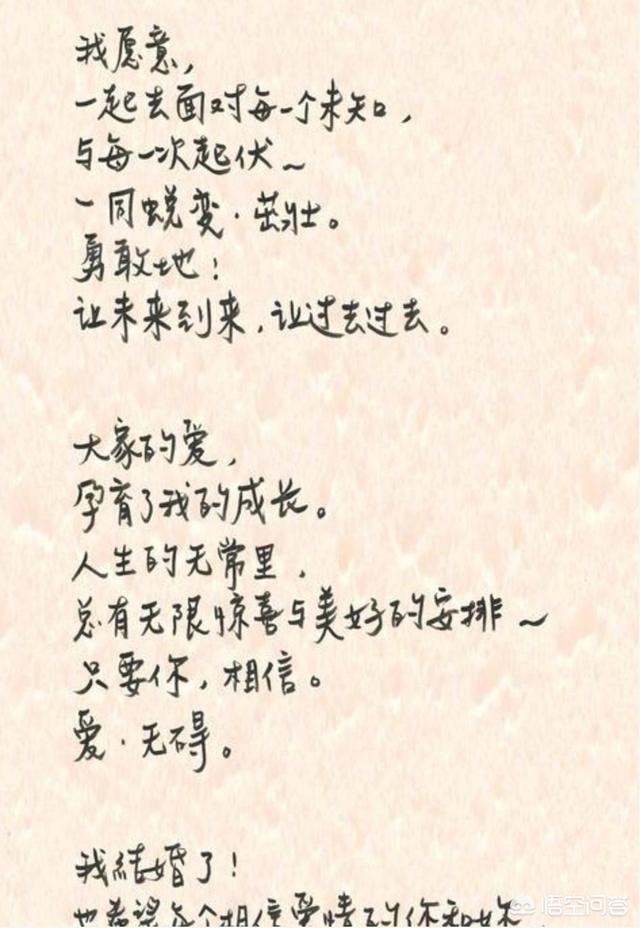 我愿意,
一起去面对每一个未知,
与每一次起伏~
一同蜕变·茁壮。
勇敢地!
让未来到来,让过去过去。
大家的爱,
孕育了我的成长。
人生的无常里,
总有无限惊喜与美好的安排~
只要你,相信。
爱·无碍。
我結婚了!
也希望每个相信爱情的你和妳
悟空问答